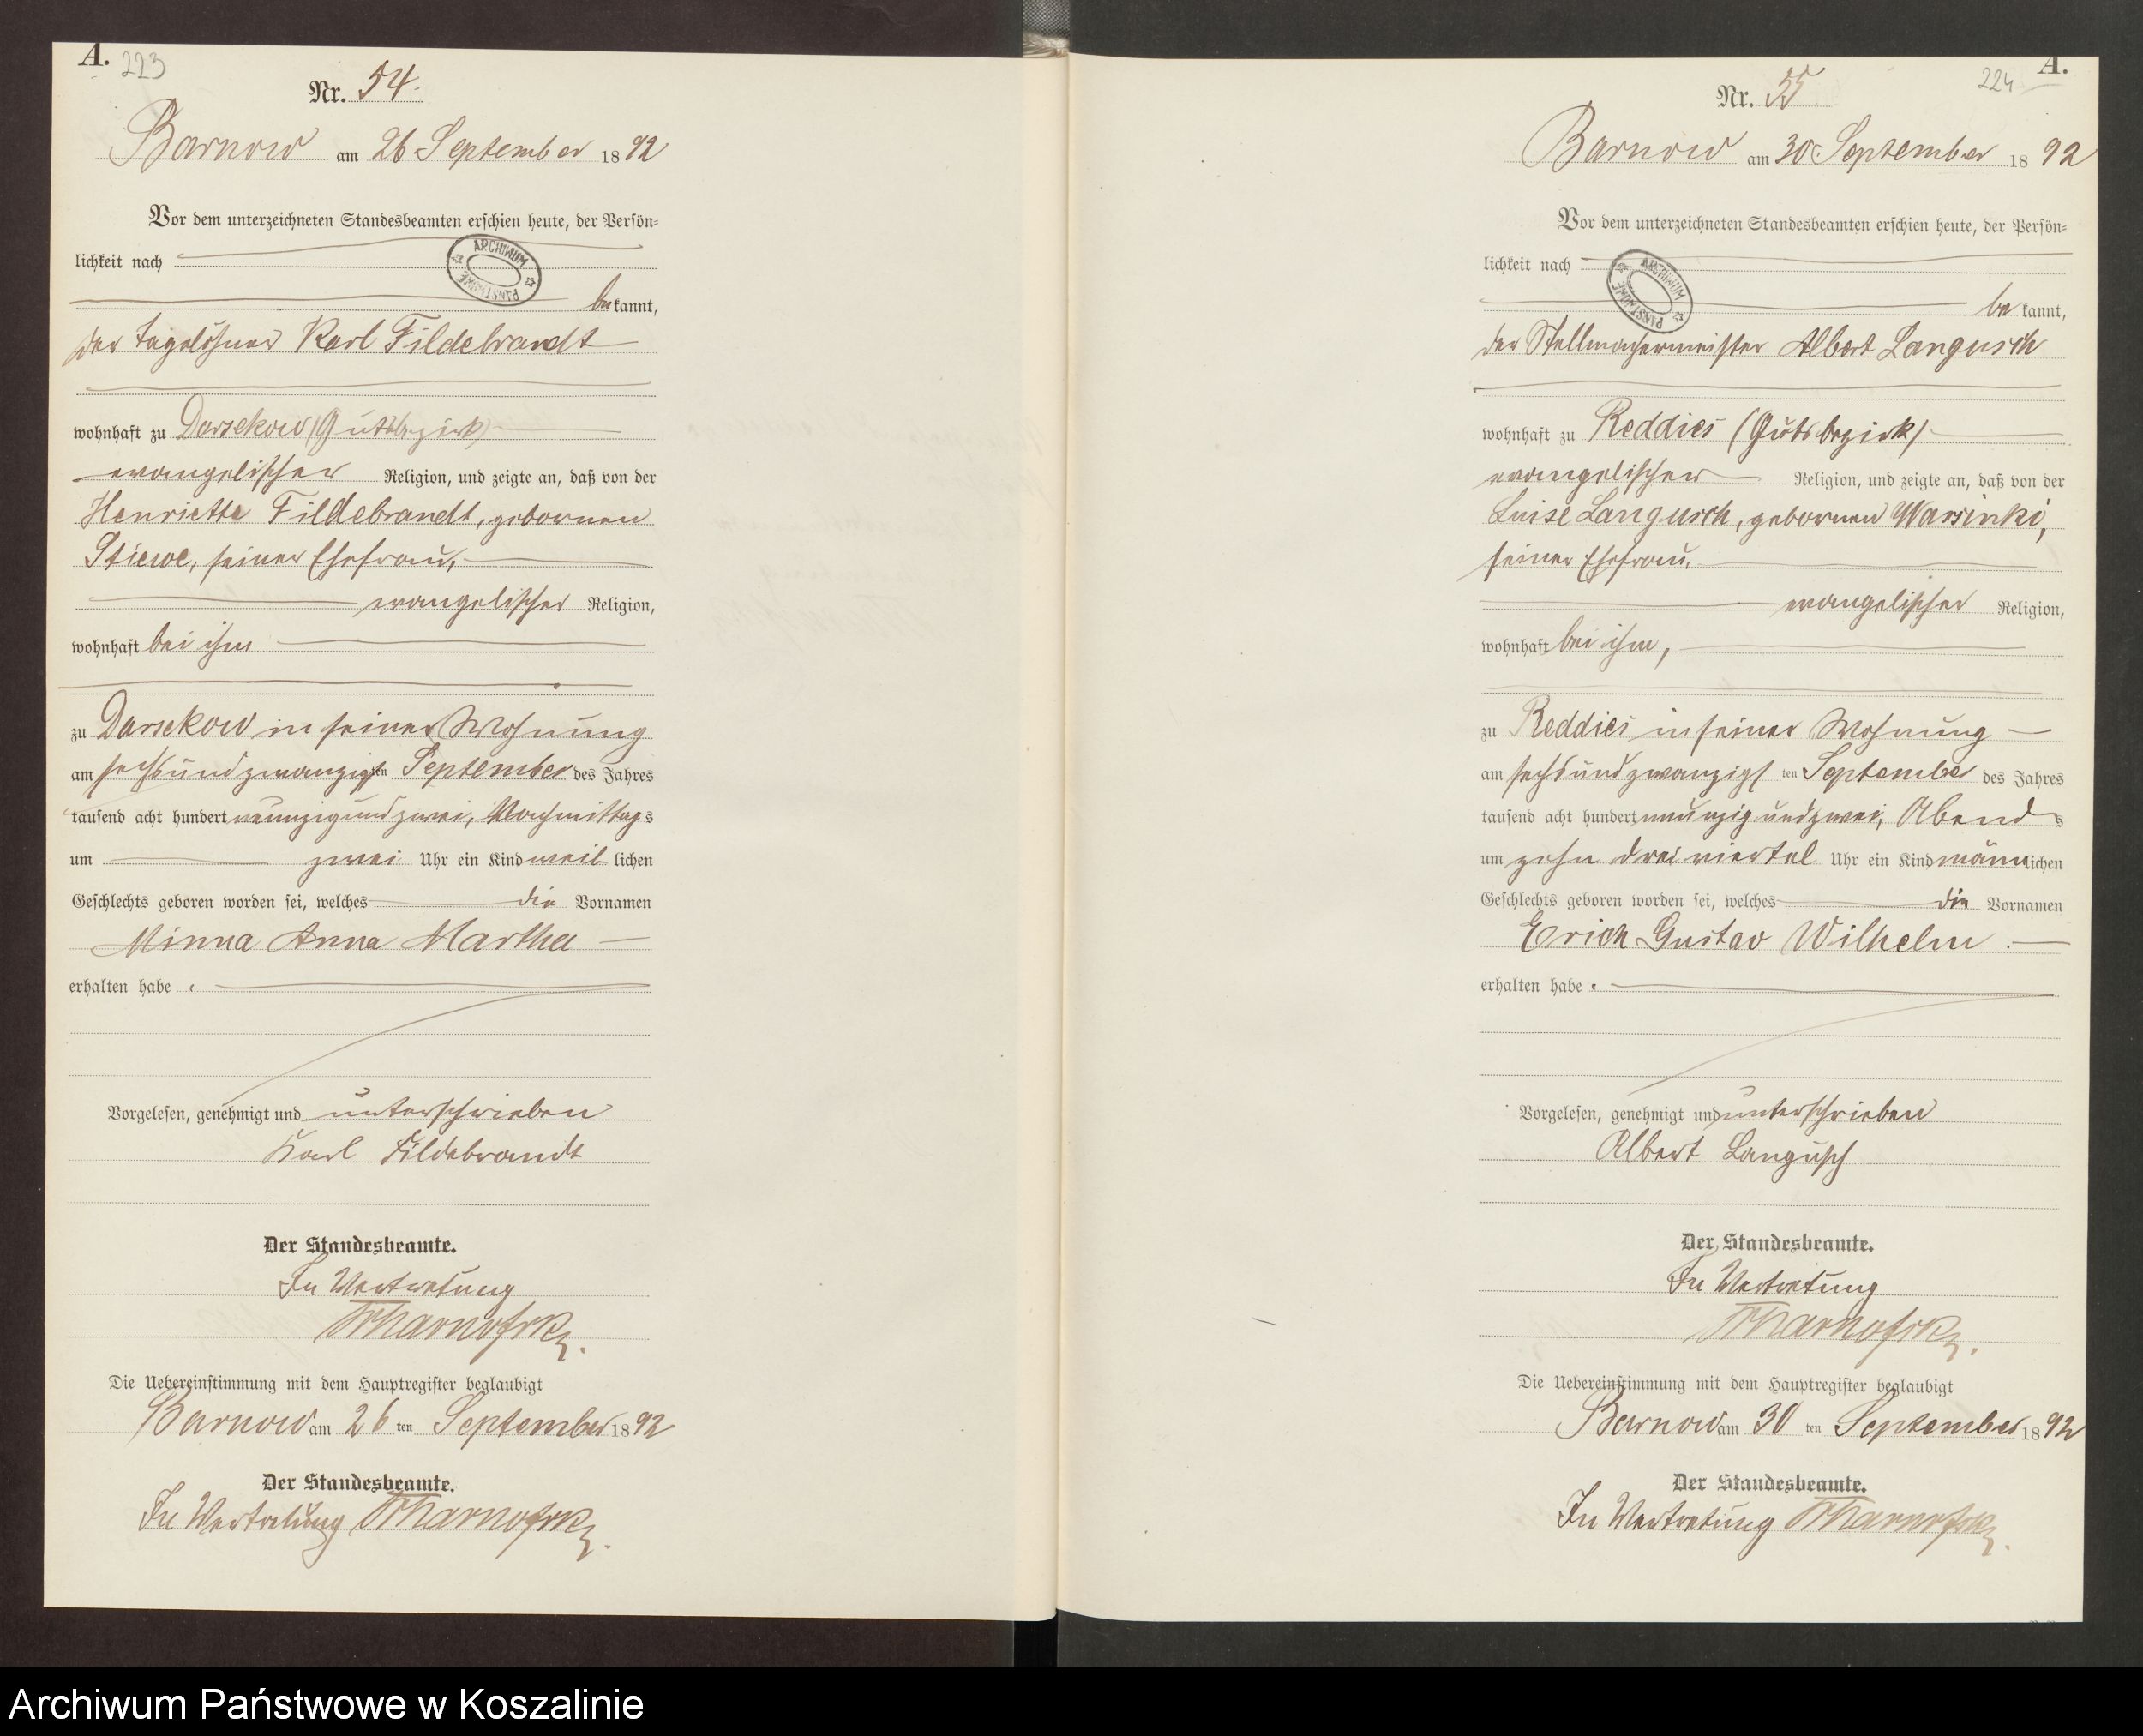 A.
223
Nr. 54.
Barnow am 26 September 1892
Vor dem unterzeichneten Standesbeamten erschien heute, der Persön-
lichkeit nach
ARCHIWUM PAŃSTWOWE
bekannt,
der Tagelöhner Karl Fildebrandt
wohnhaft zu Darsekow (Gutsbezirk)
evangelischer Religion, und zeigte an, daß von der
Henriette Fildebrandt, gebornen
Stiewe, seiner Ehefrau,
evangelischer Religion,
wohnhaft bei ihm
zu Darsekow in seiner Wohnung
am sechsundzwanzigsten September des Jahres
tausend acht hundert neunzig und zwei, Nachmittags
um zwei Uhr ein Kind weiblichen
Geschlechts geboren worden sei, welches die Vornamen
Minna Anna Martha
erhalten habe.
Vorgelesen, genehmigt und unterschrieben
Karl Fildebrandt
Der Standesbeamte.
In Vertretung
Die Uebereinstimmung mit dem Hauptregister beglaubigt
Barnow am 26ten September 1892
Der Standesbeamte.
In Vertretung
224
A.
Nr. 55
Barnow am 30 September 1892
Vor dem unterzeichneten Standesbeamten erschien heute, der Persön-
lichkeit nach
ARCHIWUM PAŃSTWOWE
bekannt,
der Stellmachermeister Albert Langusch
wohnhaft zu Reddies (Gutsbezirk)
evangelischer Religion, und zeigte an, daß von der
Luise Langusch, gebornen Warsinki,
seiner Ehefrau,
evangelischer Religion,
wohnhaft bei ihm,
zu Reddies in seiner Wohnung
am sechsundzwanzigsten September des Jahres
tausend acht hundert neunzig und zwei, Abends
um zehn dreiviertel Uhr ein Kind männlichen
Geschlechts geboren worden sei, welches die Vornamen
Erich Gustav Wilhelm.
erhalten habe.
Vorgelesen, genehmigt und unterschrieben
Albert Langusch
Der Standesbeamte.
In Vertretung
Die Uebereinstimmung mit dem Hauptregister beglaubigt
Barnow am 30ten September 1892
Der Standesbeamte.
In Vertretung
Archiwum Państwowe w Koszalinie